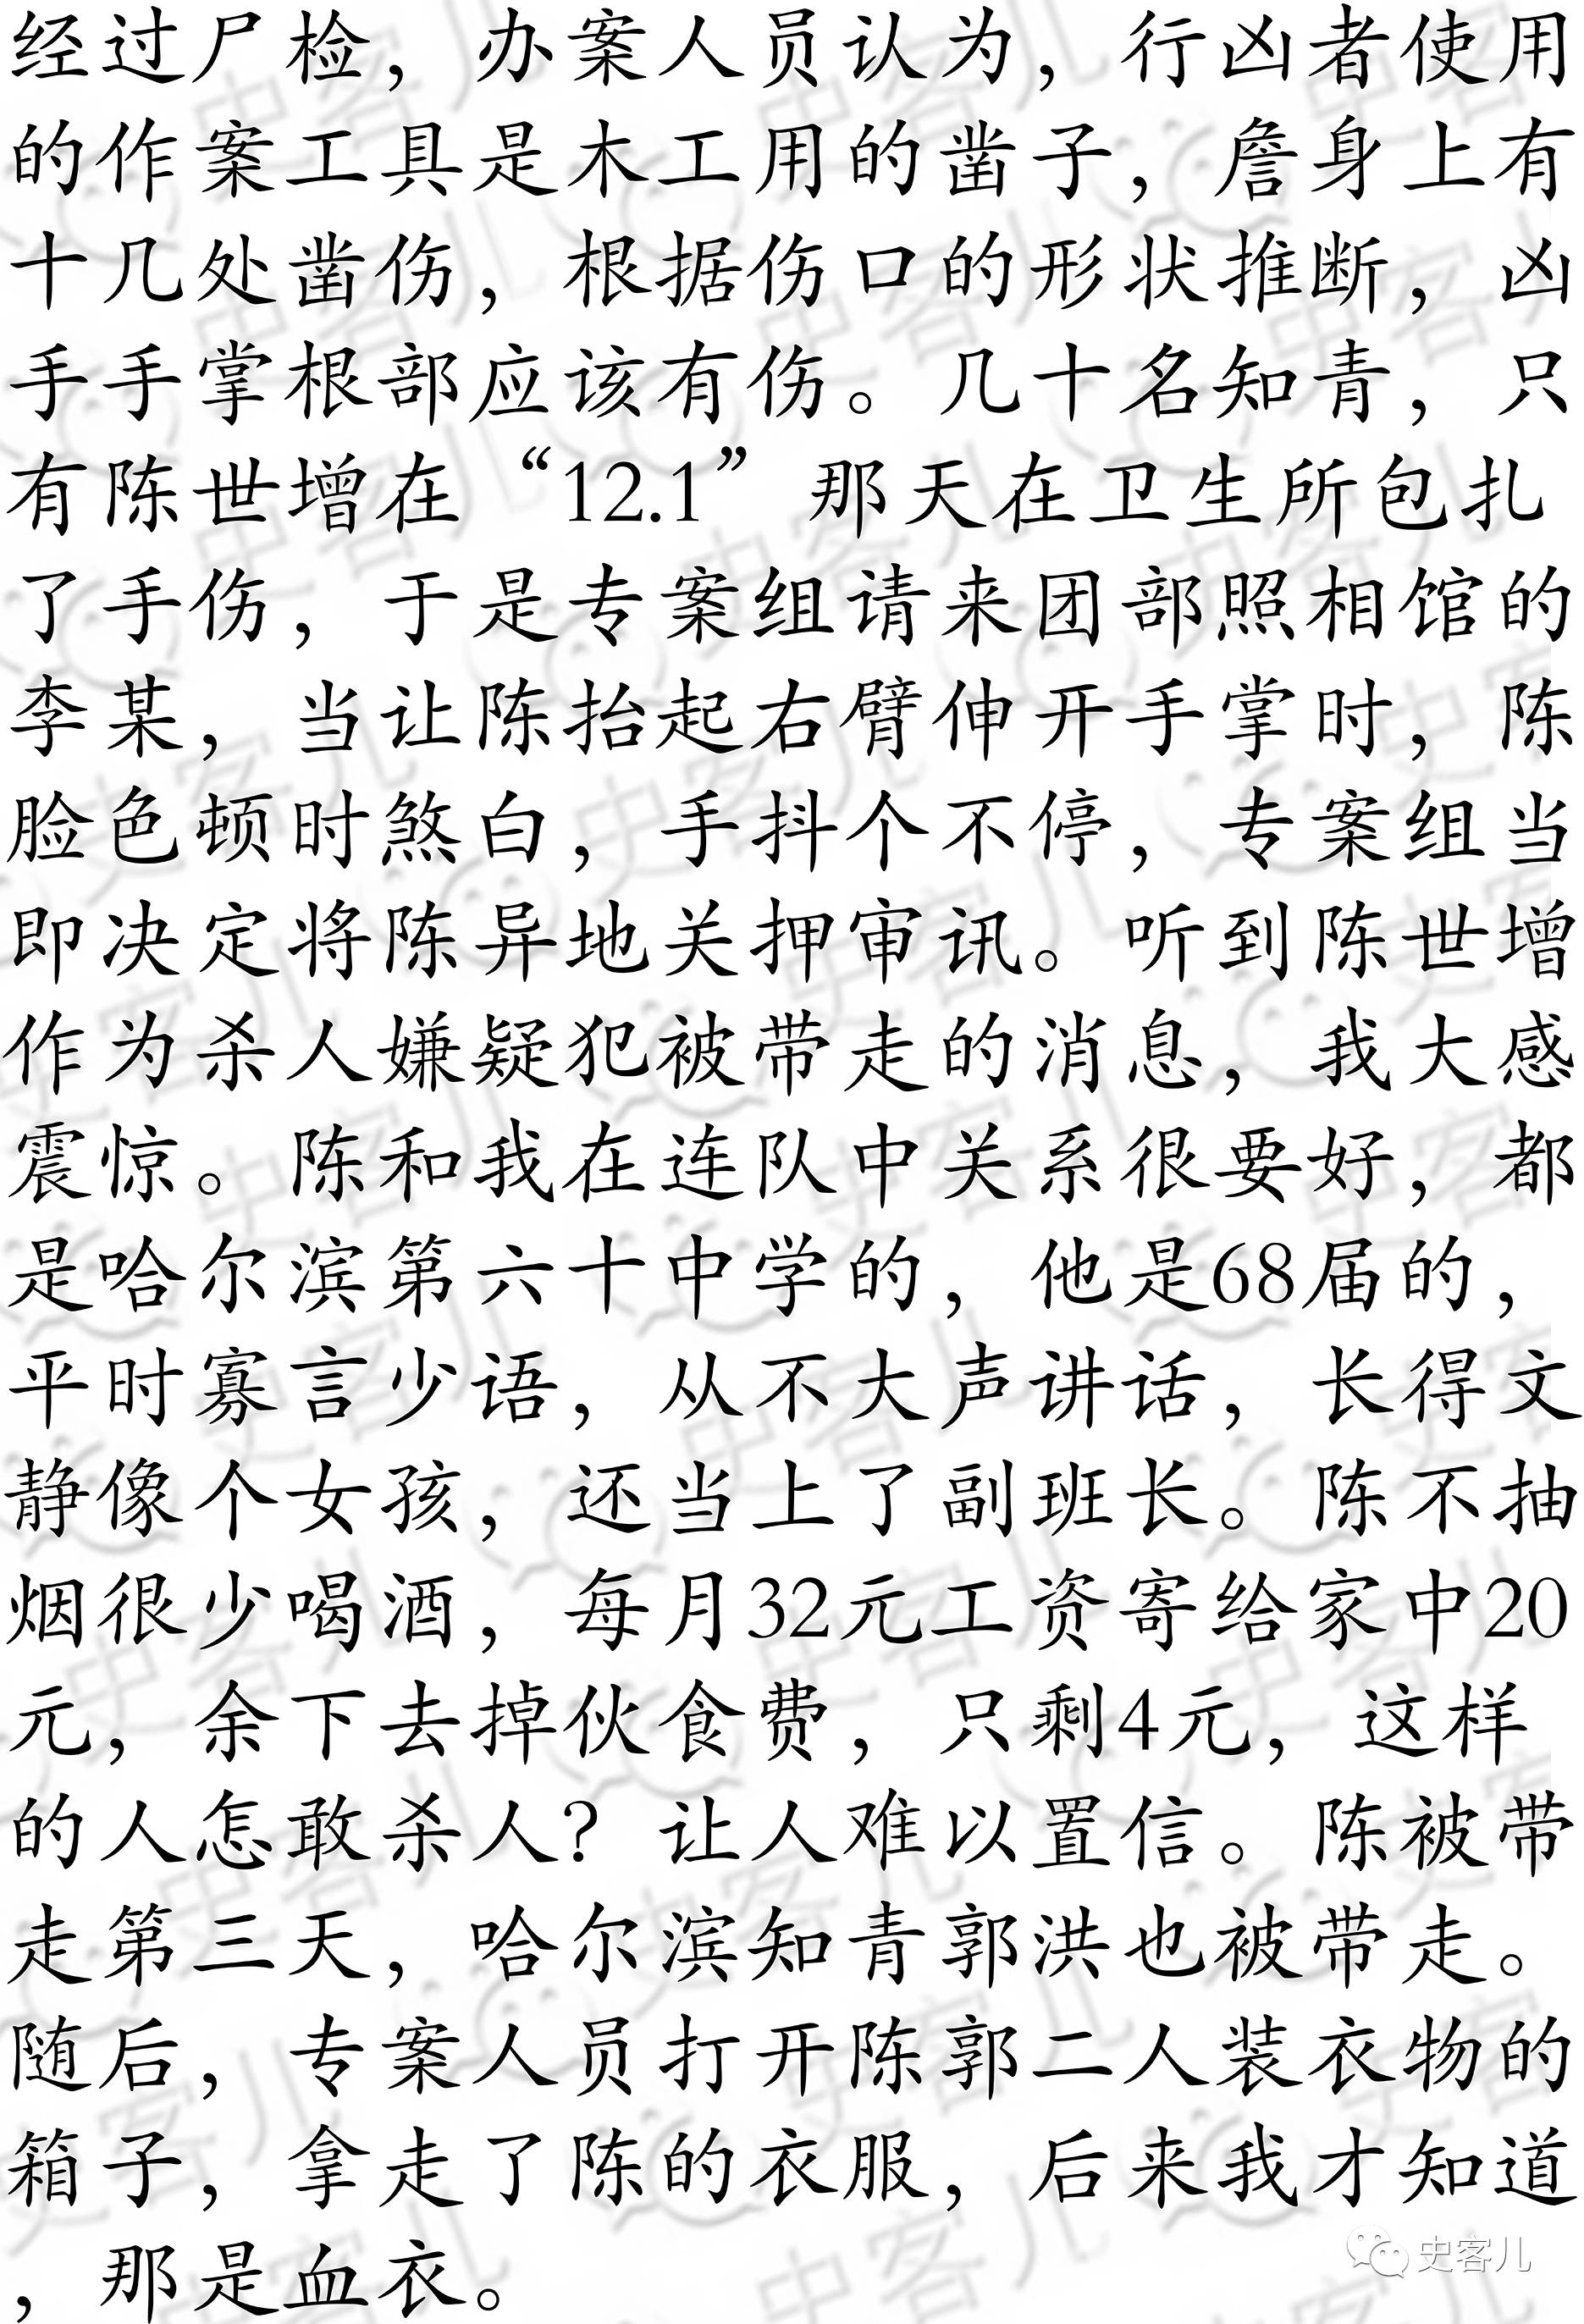 经过尸检，办案人员认为，行凶者使用
的作案工具是木工用的凿子，詹身上有
十几处凿伤，根据伤口的形状推断，凶
手手掌根部应该有伤。几十名知青，只
有陈世增在“12.1”那天在卫生所包扎
了手伤，于是专案组请来团部照相馆的
李某，当让陈抬起右臂伸开手掌时，陈
脸色顿时煞白，手抖个不停，专案组当
即决定将陈异地关押审讯。听到陈世增
作为杀人嫌疑犯被带走的消息，我大感
震惊。陈和我在连队中关系很要好，都
是哈尔滨第六十中学的，他是68届的，
平时寡言少语，从不大声讲话，长得文
静像个女孩，还当上了副班长。陈不抽
烟很少喝酒，每月32元工资寄给家中20
元，余下去掉伙食费，只剩4元，这样
的人怎敢杀人？让人难以置信。陈被带
走第三天，哈尔滨知青郭洪也被带走。
随后，专案人员打开陈郭二人装衣物的
箱子，拿走了陈的衣服，后来我才知道
，那是血衣。
史客儿